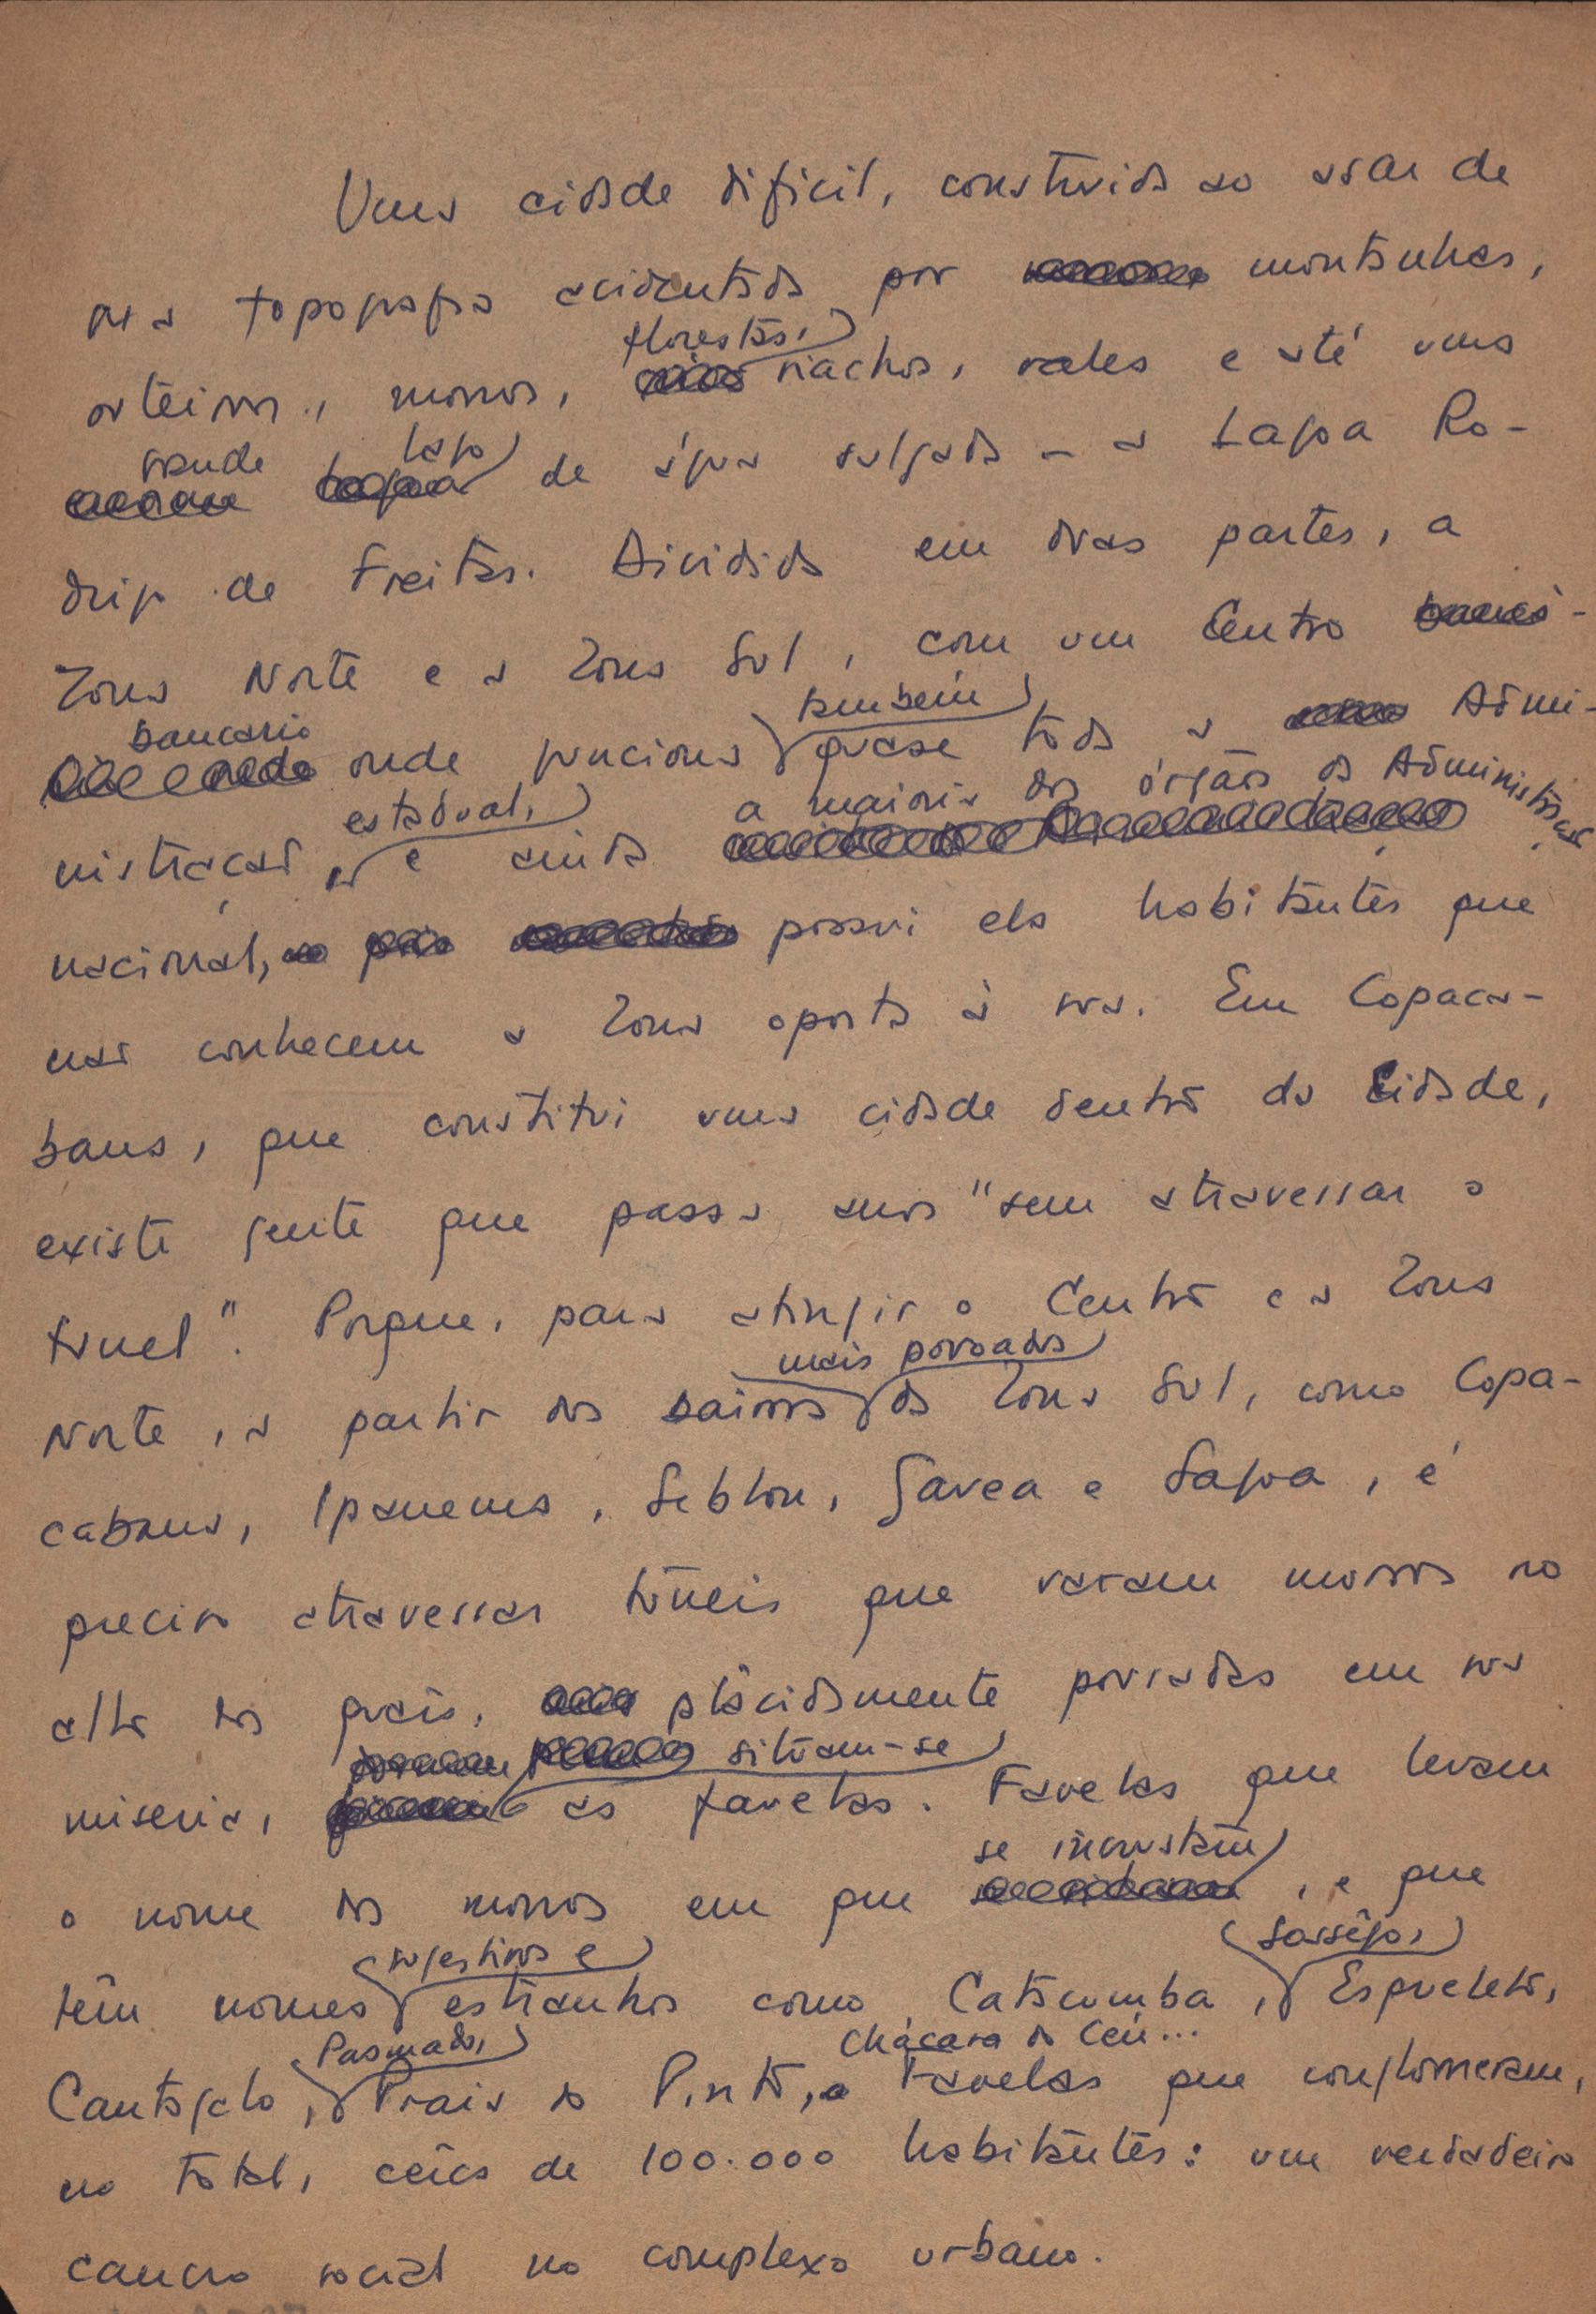 Uma cidade dificil, construida ao azar de
uma topografia acidentada por montanhas,
florestas,
outeiros, morros, riachos, vales e até uma
grande lago
de água salgada — a Lagoa Ro-
drigo de Freitas. Dividida em duas partes, a
Zona Norte e a Zona Sul, com um Centro
também
bancario onde funciona quase toda a Admi-
estadual, a maioria dos órgãos da Administração
nistração, e ainda
nacional, possui ela habitantes que
não conhecem a Zona oposta à sua. Em Copaca-
bana, que constitui uma cidade dentro da Cidade,
existe gente que passa anos "sem atravessar o
tunel". Porque, para atingir o Centro e a Zona
mais povoados
Norte, a partir dos bairros da Zona Sul, como Copa-
cabana, Ipanema, Leblon, Gavea e Lagoa, é
preciso atravessar túneis que varam morros no
alto dos quais, plàcidamente pousadas em sua
situam-se
miseria, as favelas. Favelas que levam
se incrustam
o nome dos morros em que , e que
sugestivos e Sossêgo,
têm nomes estranhos como Catacumba, Esqueleto,
Pasmado, Chácara do Ceu...
Cantagalo, Praia do Pinto, Favelas que conglomeram,
no total, cêrca de 100.000 habitantes: um verdadeiro
cancro social no complexo urbano.